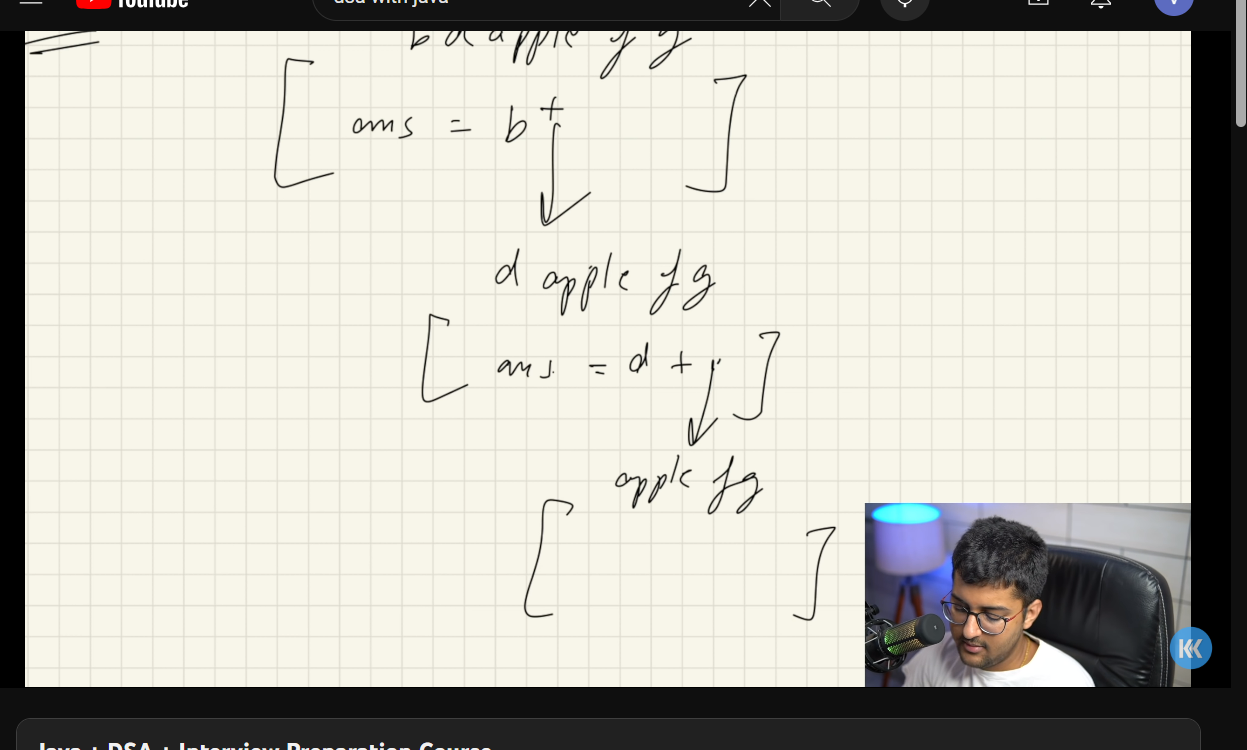 YouTube
dsa with java
V
b d apple f g
ans = b +
d apple f g
ans = d +
apple f g
KK
Java + DSA + Interview Preparation Course